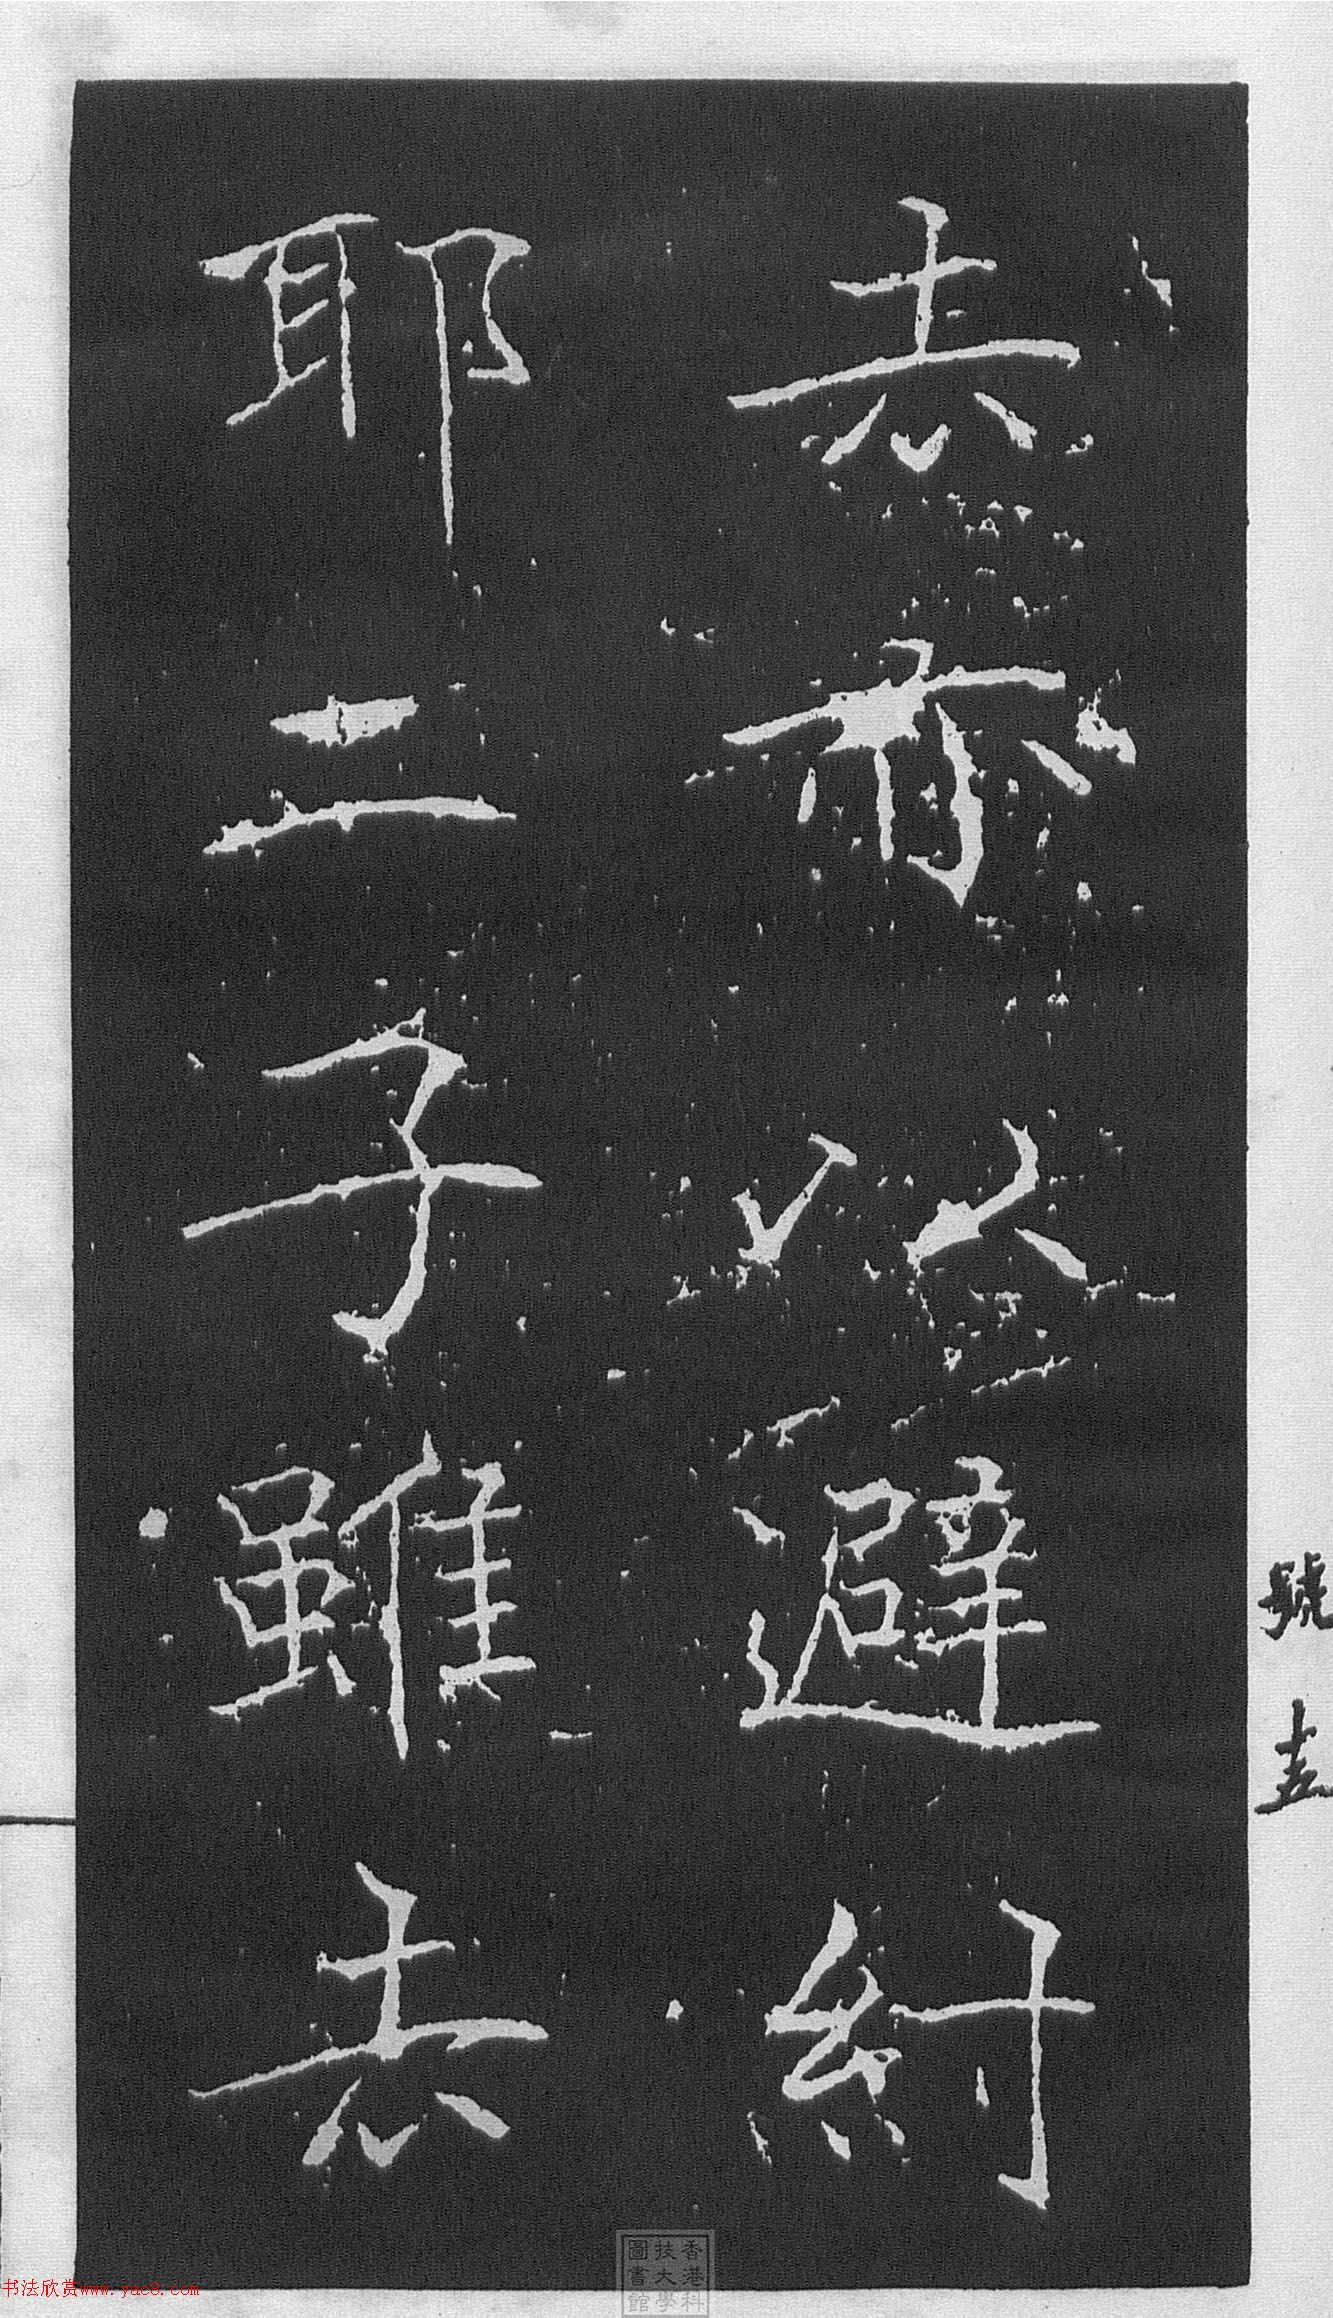 志亦以避紂
耶二子雖志
號
香港科
技大學
圖書館
书法欣赏www.yac8.com